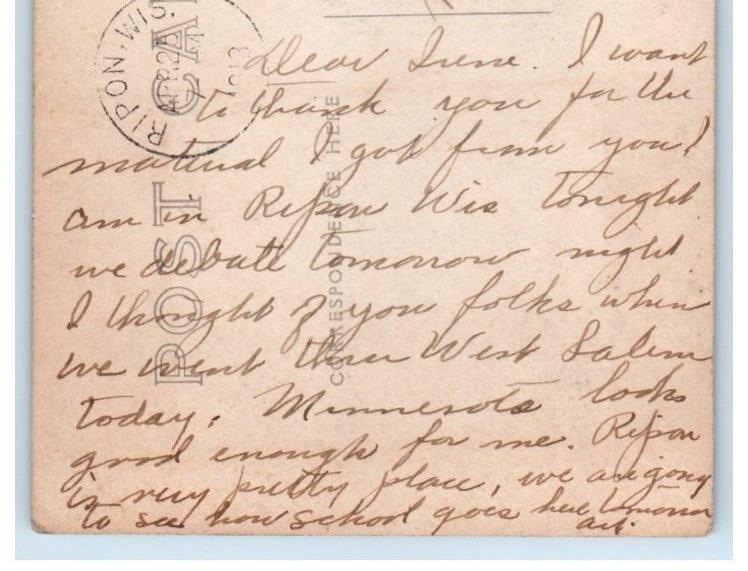 RIPON, WIS.
APR 25
7
POST CA
CORRESPONDENCE HERE
Dear Irene. I want
to thank you for the
material I got from you. I
am in Ripon Wis tonight
we debate tomorrow night.
I thought of you folks when
we went thru West Salem
today. Minnesota looks
good enough for me. Ripon
is very pretty place, we are going
to see how school goes here tomorrow